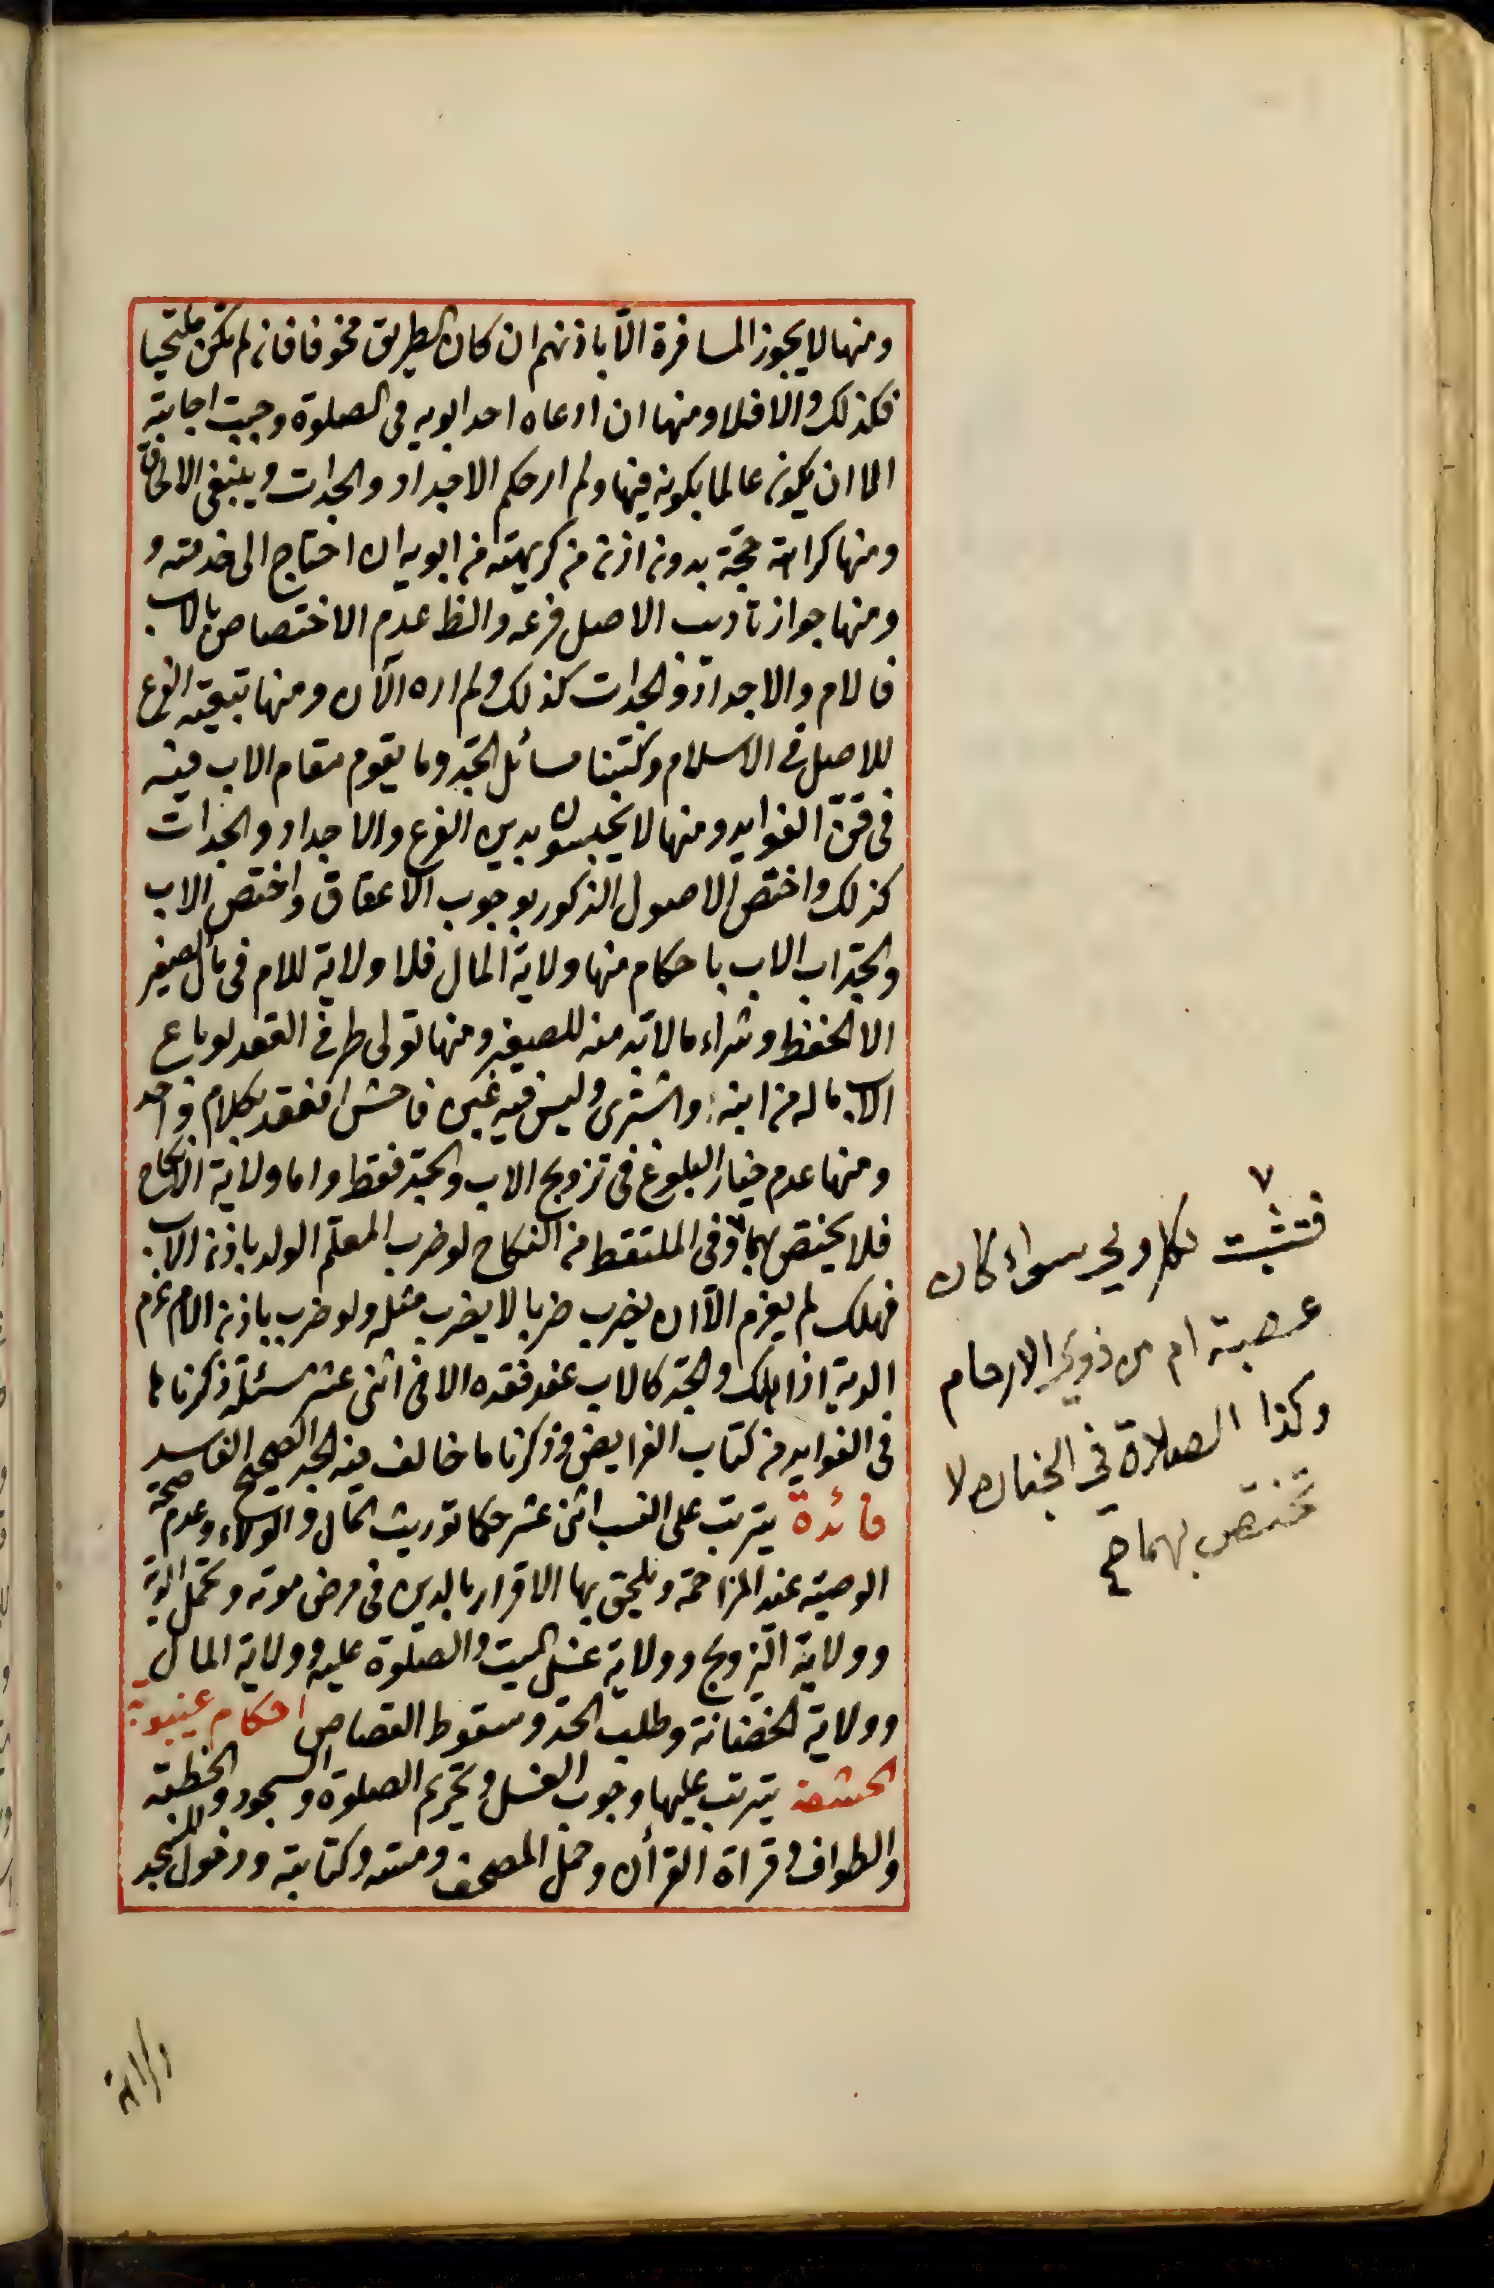 ومنها لا يجوز المسافرة الّا باذنهم ان كان الطريق مخوفا فان لم تكن ملتحيا
فكذلك والا فلا ومنها ان ادعاه احد ابويه فى الصلوة وجبت اجابته
الا ان يكون عالما بكونه فيها ولم ار حكم الاجداد والجدات وينبغى الالحاق
ومنها كراهة حجّه بدون اذن من كرهته من ابويه ان احتاج الى خدمته و
ومنها جواز تاديب الاصل فرعه والظ عدم الاختصاص بالاب
فالام والاجداد والجدات كذلك ولم اره الآن ومنها تبعيته الفرع
للاصل فى الاسلام وكتبنا مسائل الجّد وما يقوم مقام الاب فيه
فى فنّ الفوايد ومنها لا يحبسون بدين الفرع والاجداد والجدات
كذلك واختصّ الاصول الذكور بوجوب الاعفاق واختص الاب
والجدّ اب الاب باحكام منها ولاية المال فلا ولاية للام فى مال الصغير
الا الحفظ وشراء ما لابّد منه للصغير ومنها تولى طرفى العقد لو باع
الاب ماله من ابنه او اشترى وليس فيه غبن فاحش انعقد بكلام واحد
ومنها عدم خيار البلوغ فى تزويج الاب والجّد فقط واما ولاية الانكاح
فلا يختص بهما ٧ وفى الملتقط من النكاح لو ضرب المعلّم الولد باذن الاب
فهلك لم يغرم الّا ان يضرب ضربا لا يضرب مثله ولو ضرب باذن الام غرم
الدية اذا هلك والجّد كالاب عند فقده الا فى اثنى عشر مسئلة ذكرناها
فى الفوايد من كتاب الفرايض وذكرنا ما خالف فيه الجد الصحيح الفاسد
فائدة يترتب على النسب اثنى عشر حكما توريث المال والولاء وعدم صحة
الوصية عند المزاحمة ويلحق بها الاقرار بالدين فى مرض موته وتحمل الدية
وولاية التزويج وولاية غسل الميت والصلوة عليه وولاية المال
وولاية الحضانة وطلب الحد وسقوط القصاص احكام غيبوبة
الحشفة يترتب عليها وجوب الغسل وتحريم الصلوة والسجود والخطبة
والطواف وقراة القرأن وحمل المصحف ومسّه وكتابته ودخول المسجد
٧
فتثبت لكل ولي سواء كان
عصبة ام من ذوي الارحام
وكذا الصلاة في الجنازة لا
تختص بهما صح
وكراهة